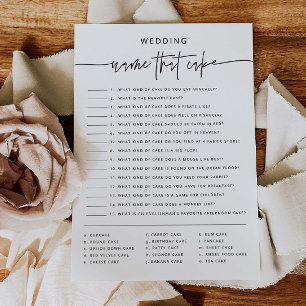 WEDDING
name that cake
1. WHAT KIND OF CAKE DO YOU EAT ANNUALLY?
2. WHAT IS THE HEAVIEST CAKE?
3. WHAT KIND OF CAKE DOES A PIRATE LIKE?
4. WHAT KIND OF CAKE GOES WELL ON A SAUCER?
5. WHAT KIND OF CAKE SHOULD BE EATEN IN BED?
6. WHAT KIND OF CAKE DO YOU GET IN HEAVEN?
7. WHAT KIND OF CAKE DO YOU FIND AT A FABRIC STORE?
8. WHAT KIND OF CAKE IS A BIG FLOP?
9. WHAT KIND OF CAKE DOES A MOUSE LIKE BEST?
10. WHAT KIND OF CAKE IS FOUND ON THE OCEAN FLOOR?
11. WHAT KIND OF CAKE DO YOU FEED YOUR RABBIT?
12. WHAT KIND OF CAKE DO YOU HAVE FOR BREAKFAST?
13. WHAT KIND OF CAKE IS A GAME FOR CHILDREN?
14. WHAT KIND OF CAKE DOES A MONKEY LIKE?
15. WHAT IS AN ENGLISHMAN'S FAVORITE AFTERNOON CAKE?
A. CUPCAKE
B. POUND CAKE
C. UPSIDE DOWN CAKE
D. RED VELVET CAKE
E. CHEESE CAKE
F. CARROT CAKE
G. BIRTHDAY CAKE
H. PATTY CAKE
I. SPONGE CAKE
J. BANANA CAKE
K. RUM CAKE
L. PANCAKE
M. SHEET CAKE
N. ANGEL FOOD CAKE
O. TEA CAKE